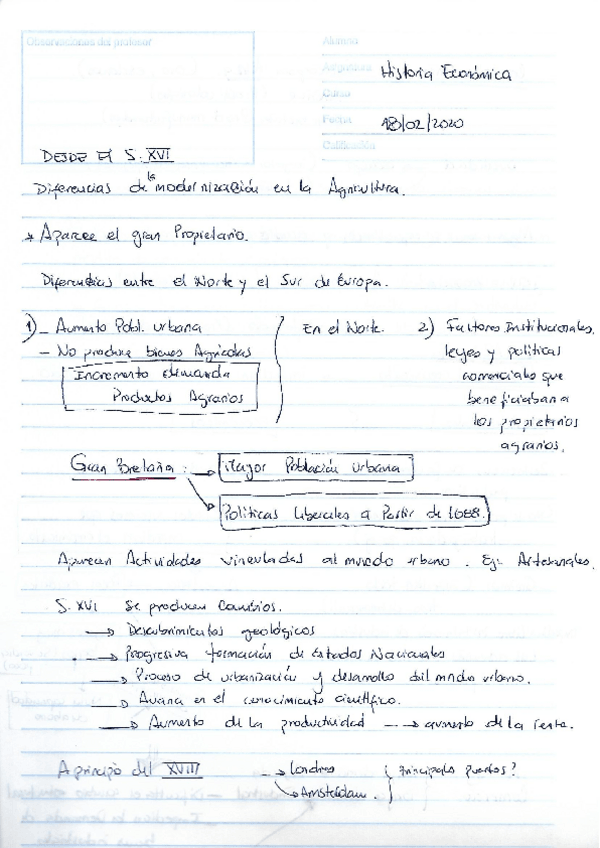 Observaciones del profesor
Alumno
Asignatura Historia Económica
Curso
Fecha 18/02/2020
Calificación
DESDE El S. XVI
Diferencias de la modernización en la Agricultura.
* Aparece el gran Propietario.
Diferencias entre el Norte y el Sur de Europa.
1) - Aumento Pobl. urbana
- No produce bienes Agrícolas
Incremento demanda
Productos Agrarios
En el Norte.
2) Factores Institucionales,
leyes y políticas
comerciales que
beneficiaban a
los propietarios
agrarios.
Gran Bretaña: → Mayor Población urbana
→ Políticas liberales a Partir de 1688.
Aparecen Actividades vinculadas al mundo urbano. Ej: Artesanales.
S. XVI Se producen Cambios.
→ Descubrimientos geológicos
→ Progresiva formación de Estados Nacionales
→ Proceso de urbanización y desarrollo del mundo urbano.
→ Avance en el conocimiento científico.
→ Aumento de la productividad --→ aumento de la renta.
A principio del XVIII → Londres
→ Amsterdam.
¿Principales puertos?